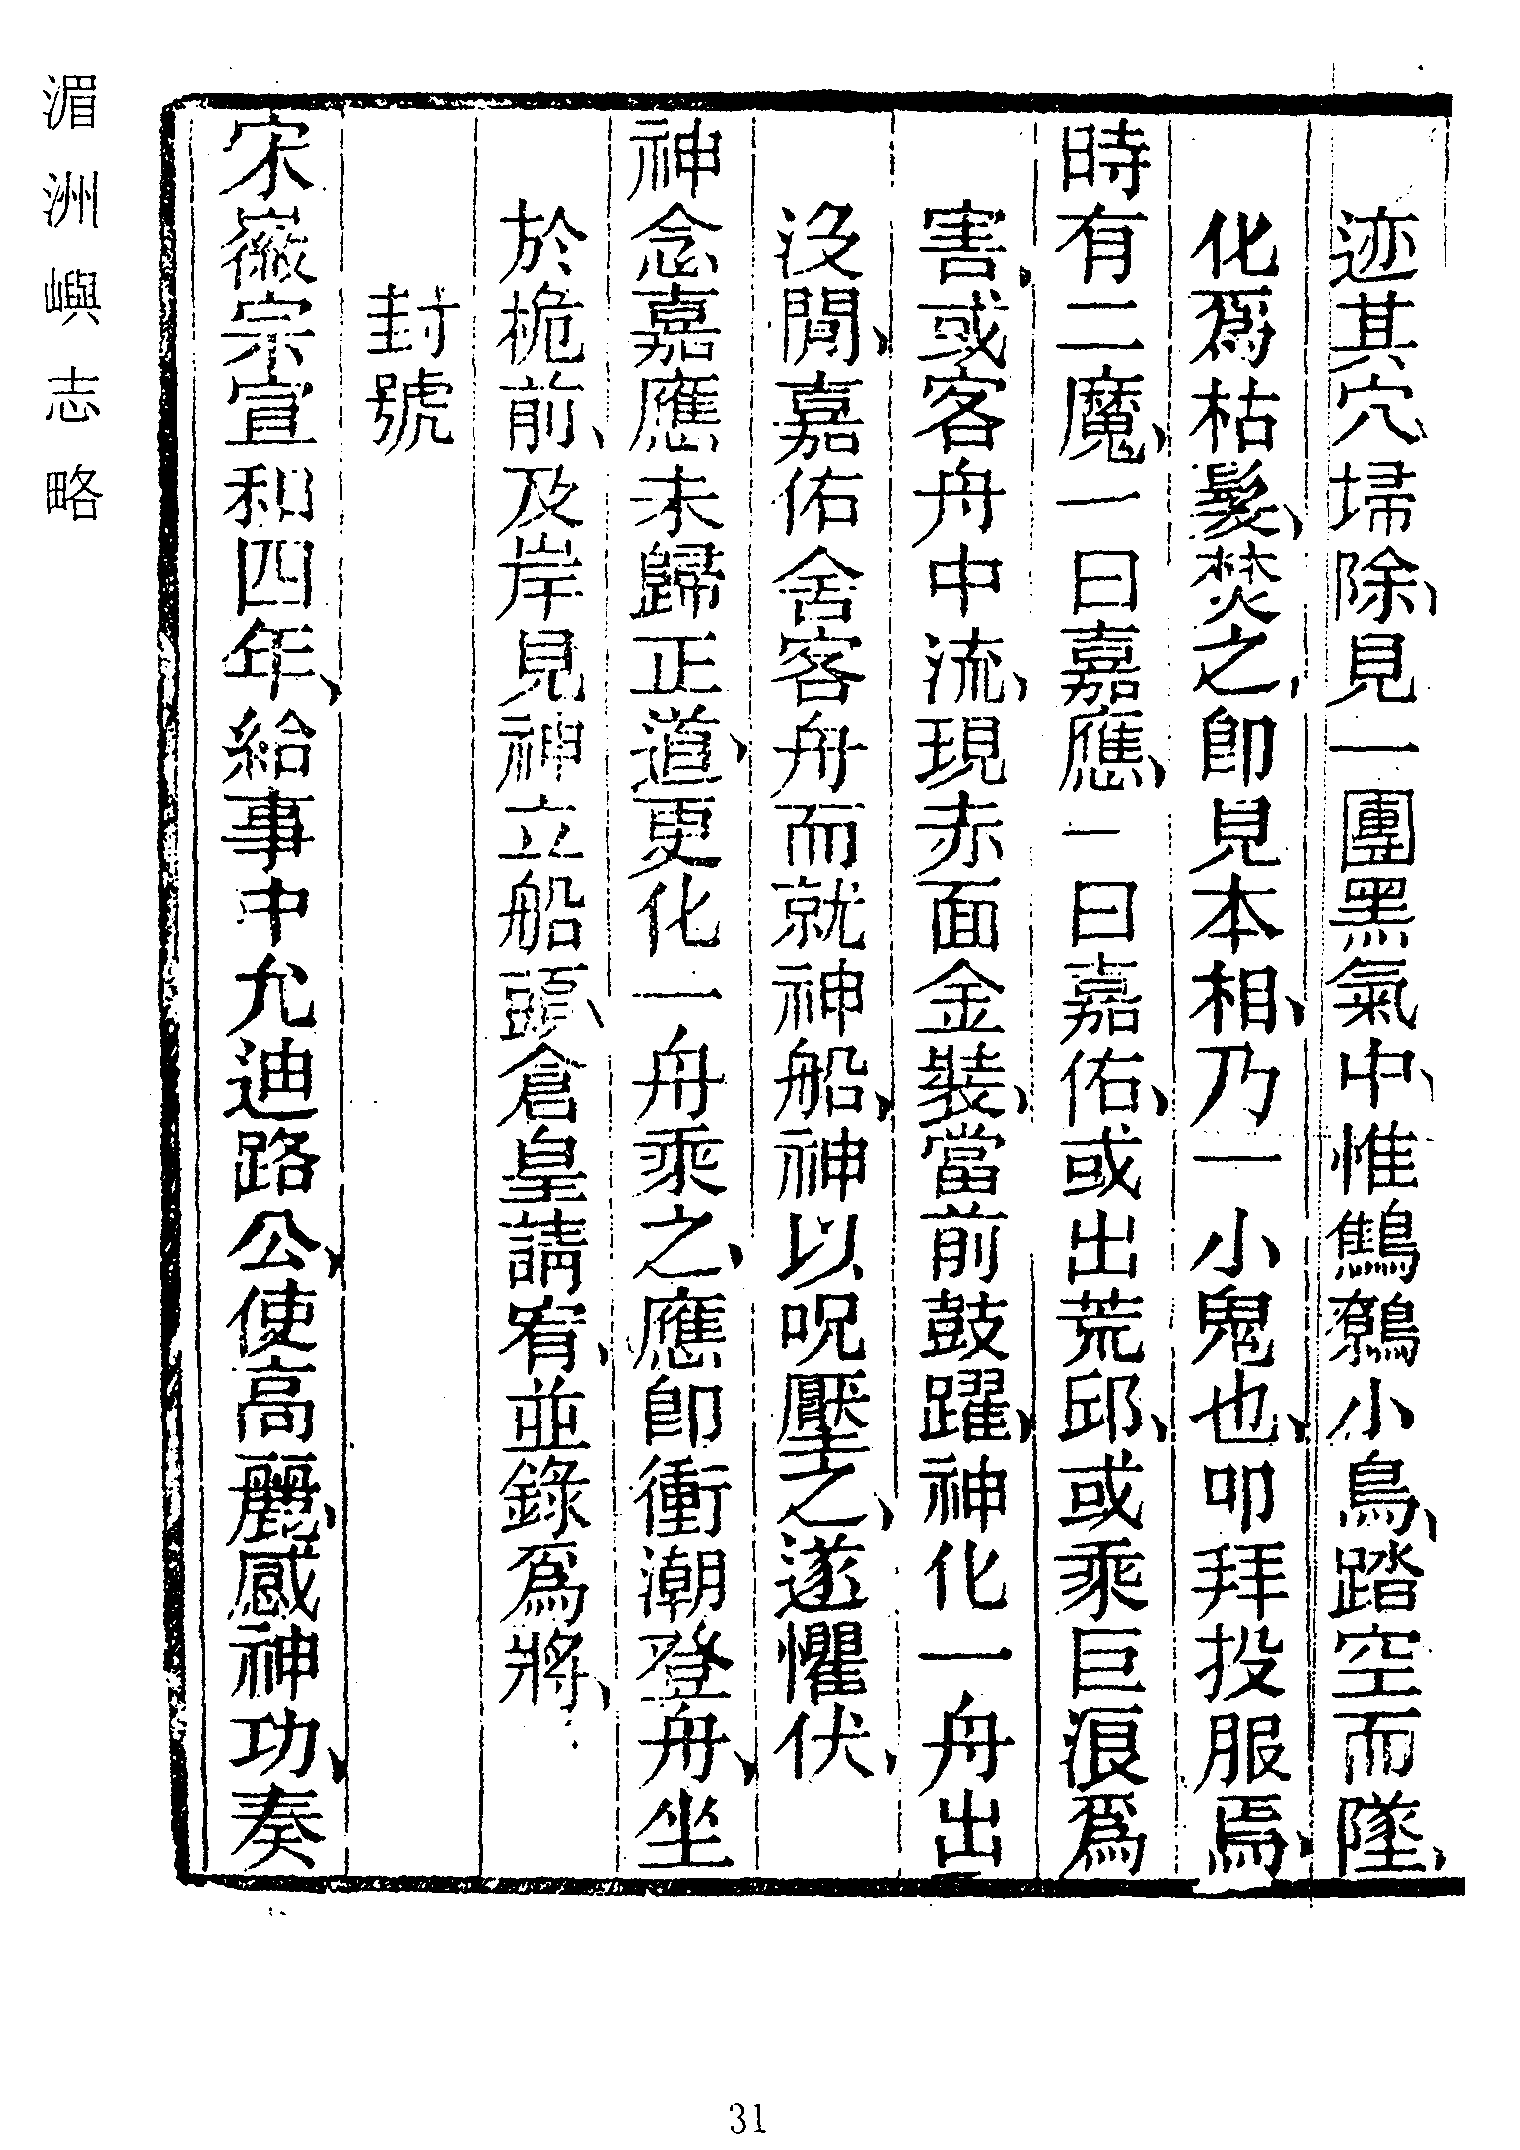 迹其穴、埽除、見一團黑氣中、惟鷦鷯小鳥、踏空而墜、
化爲枯髮、焚之、卽見本相、乃一小鬼也、叩拜投服焉、
時有二魔、一曰嘉應、一曰嘉佑、或出荒邱、或乘巨浪爲
害、或客舟中流、現赤面金裝、當前鼓躍、神化一舟出
沒閒、嘉佑舍客舟而就神船、神以呪壓之、遂懼伏、
神念嘉應未歸正道、更化一舟乘之、應卽衝潮登舟、坐
於桅前、及岸見神立船頭、倉皇請宥、並錄爲將、
封號
宋徽宗宣和四年、給事中允迪路公、使高麗、感神功、奏
湄洲嶼志略
31